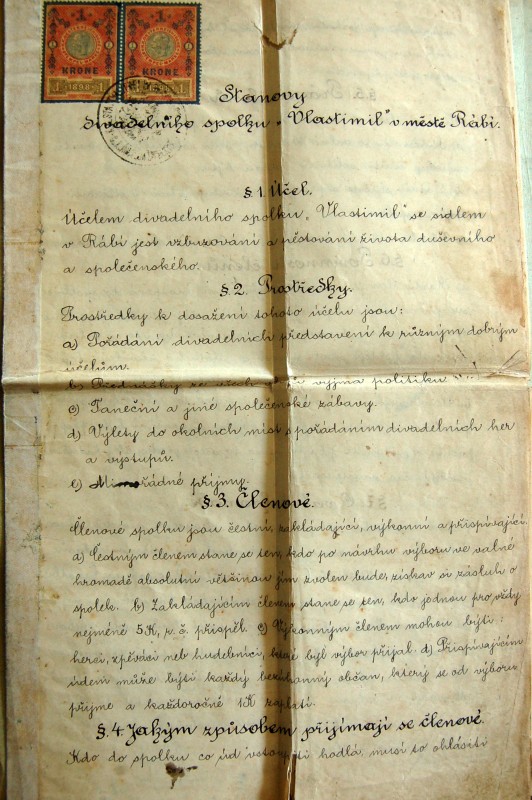 1 1
KRONE KRONE
1 1898 1
Stanovy
divadelního spolku „Vlastimil" v městě Rábí.
§ 1. Účel.
Účelem divadelního spolku „Vlastimil" se sídlem
v Rábí jest vzbuzování a pěstování života duševního
a společenského.
§ 2. Prostředky.
Prostředky k dosažení tohoto účelu jsou:
a) Pořádání divadelních představení k různým dobrým
účelům.
b) Přednášky ze všech vyjma politiku
c) Taneční a jiné společenské zábavy.
d) Výlety do okolních míst s pořádáním divadelních her
a výstupů.
e) Mimořádné příjmy.
§. 3. Členové.
Členové spolku jsou čestní, zakládající, výkonní a přispívající.
a) Čestným členem stane se ten, kdo po návrhu výboru ve valné
hromadě absolutní většinou jím zvolen bude, získav si zásluh o
spolek. b) Zakládajícím členem stane se ten, kdo jednou pro vždy
nejméně 5K, r. č. přispěl. c) Výkonným členem mohou býti:
herci, zpěváci neb hudebníci, které byl výbor přijal. d) Přispívajícím
údem může býti každý bezúhonný občan, který se od výboru
přijme a každoročně 1K zaplatí.
§. 4. Jakým způsobem přijímají se členové.
Kdo do spolku co úd vstoupiti hodlá, musí to ohlásiti